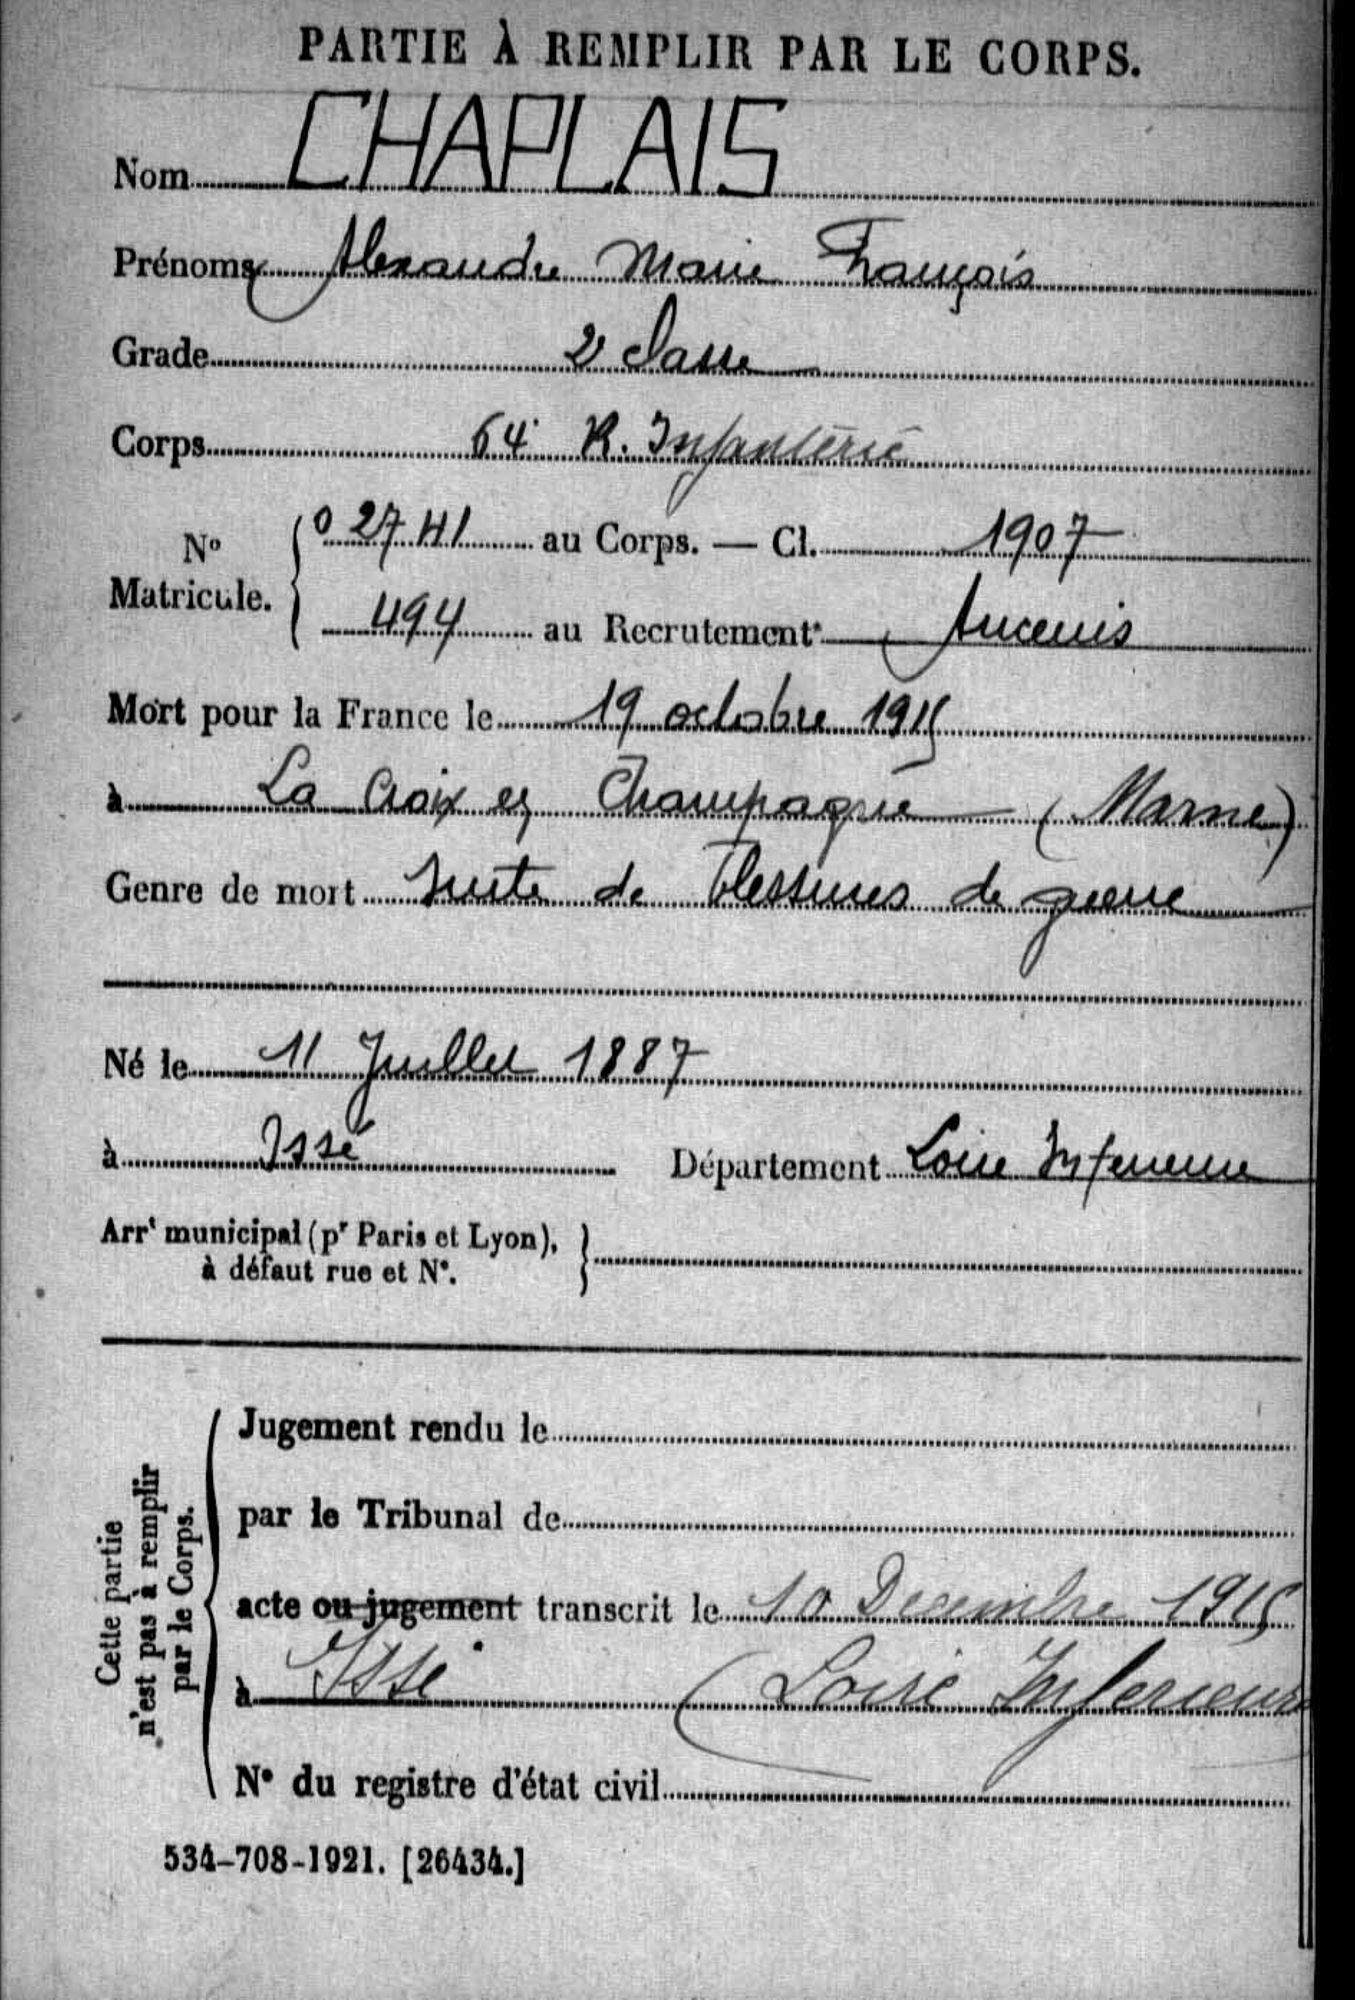 PARTIE À REMPLIR PAR LE CORPS.
Nom CHAPLAIS
Prénoms Alexandre Marie François
Grade 2e classe
Corps 64e R. Infanterie
No Matricule. 02741 au Corps. — Cl. 1907
494 au Recrutement Ancenis
Mort pour la France le 19 octobre 1915
à La Croix en Champagne (Marne)
Genre de mort Suite de blessures de guerre
Né le 11 Juillet 1887
à Issé Département Loire Inférieure
Arrt municipal (pr Paris et Lyon),
à défaut rue et No.
Cette partie
n'est pas à remplir
par le Corps.
Jugement rendu le
par le Tribunal de
acte ou jugement transcrit le 10 Decembre 1915
à Issé (Loire Inferieure
No du registre d'état civil
534-708-1921. [26434.]